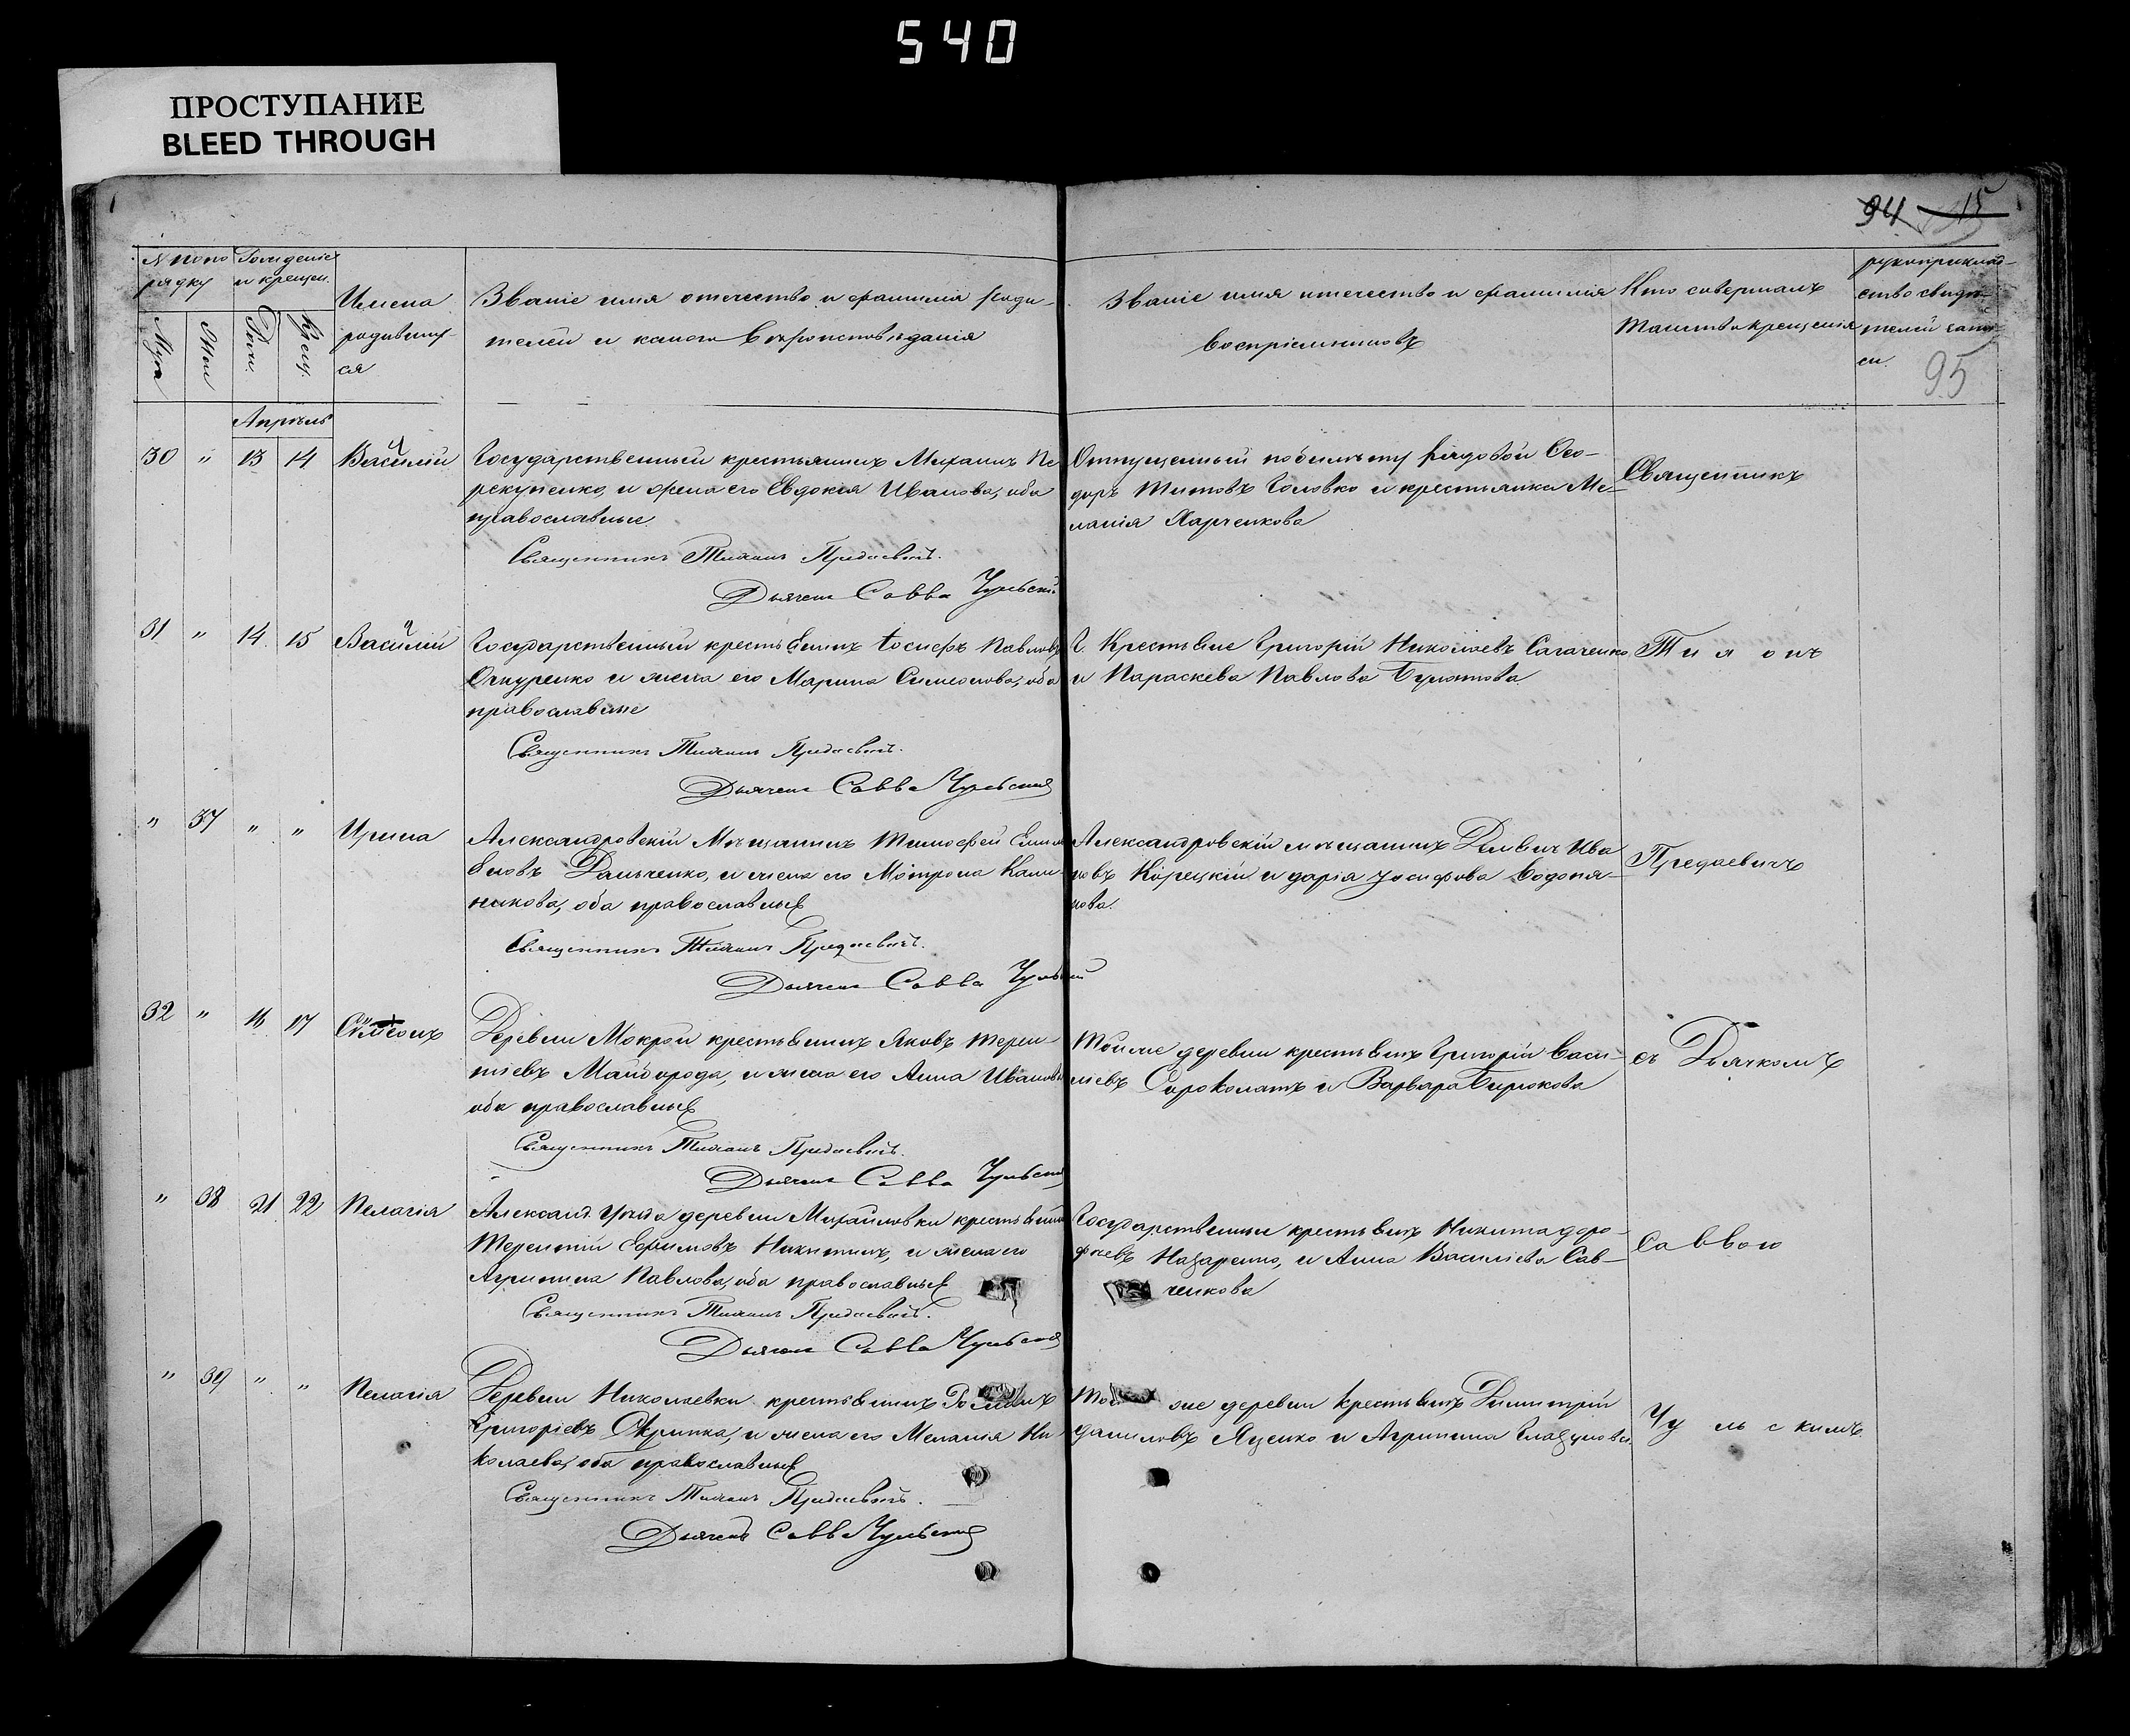 540
ПРОСТУПАНИЕ
BLEED THROUGH
94 15
95
№ по по
рядку
Рожденіе
и крещен.
Муж
Жен
Рожд.
Крещ.
Имена
родивших
ся
Званіе имя отечество и фамилія роди-
телей и какого вѣроисповѣданія
Званіе имя отечество и фамилія
воспріемниковъ
Кто совершалъ
таинство крещенія
рукоприклад-
ство свидѣ-
телей запи-
си.
Апрѣль
30 " 13 14 Василій
Государственный крестьянинъ Михаилъ
и жена его Евдокія Иванова, оба
православные
Священникъ Тихонъ Предаевичъ.
Дьячекъ Савва Чульскій
Отпущенный по билету рядовой Ѳео-
доръ Титовъ Головко и крестьянка Ме-
ланія Харченкова
Священникъ
31 " 14 15 Василій
Государственный крестьянинъ Іосифъ Павловъ
и жена его Марина Симеонова, оба
православные
Священникъ Тихонъ Предаевичъ.
Дьячекъ Савва Чульскій
Г. Крестьяне Григорій Николаевъ Сагаченко
и Параскева Павлова
Тихонъ
" 37 " " Ирина
Александровскій Мѣщанинъ Тимофей Емиль
яновъ Данченко, и жена его Мотрона Кали-
никова, оба православные
Священникъ Тихонъ Предаевичъ.
Дьячекъ Савва Чульскій
Александровскій мѣщанинъ Ива
новъ Корецкій и Дарія Іосифова Водопя-
нова.
Предаевичъ
32 " 16 17 Симеонъ
Деревни Мокрой крестьянинъ Яковъ Терен-
тіевъ Майборода, и жена его Анна Иванова
оба православные
Священникъ Тихонъ Предаевичъ.
Дьячекъ Савва Чульскій
Той же деревни крестьянинъ Григорій Васи-
ліевъ Сороколатъ и Варвара Бирюкова
съ Дьячкомъ
" 38 21 22 Пелагія
Александ. Уѣзда деревни Михайловки крестьянинъ
Терентій Ефимовъ Никитинъ, и жена его
Агрипина Павлова, оба православные
Священникъ Тихонъ Предаевичъ.
Дьячекъ Савва Чульскій
Государственный крестьянинъ Никита Доро-
феевъ Назаренко, и Анна Василіева Сав-
ченкова
Саввою
" 39 " " Пелагія
Деревни Николаевки крестьянинъ
Григоріевъ Скрипка, и жена его Меланія Ни-
колаева, оба православные
Священникъ Тихонъ Предаевичъ.
Дьячекъ Савва Чульскій
Той же деревни крестьянинъ Димитрій
Даниловъ Яценко и Агрипина Глазунова.
Чульскимъ